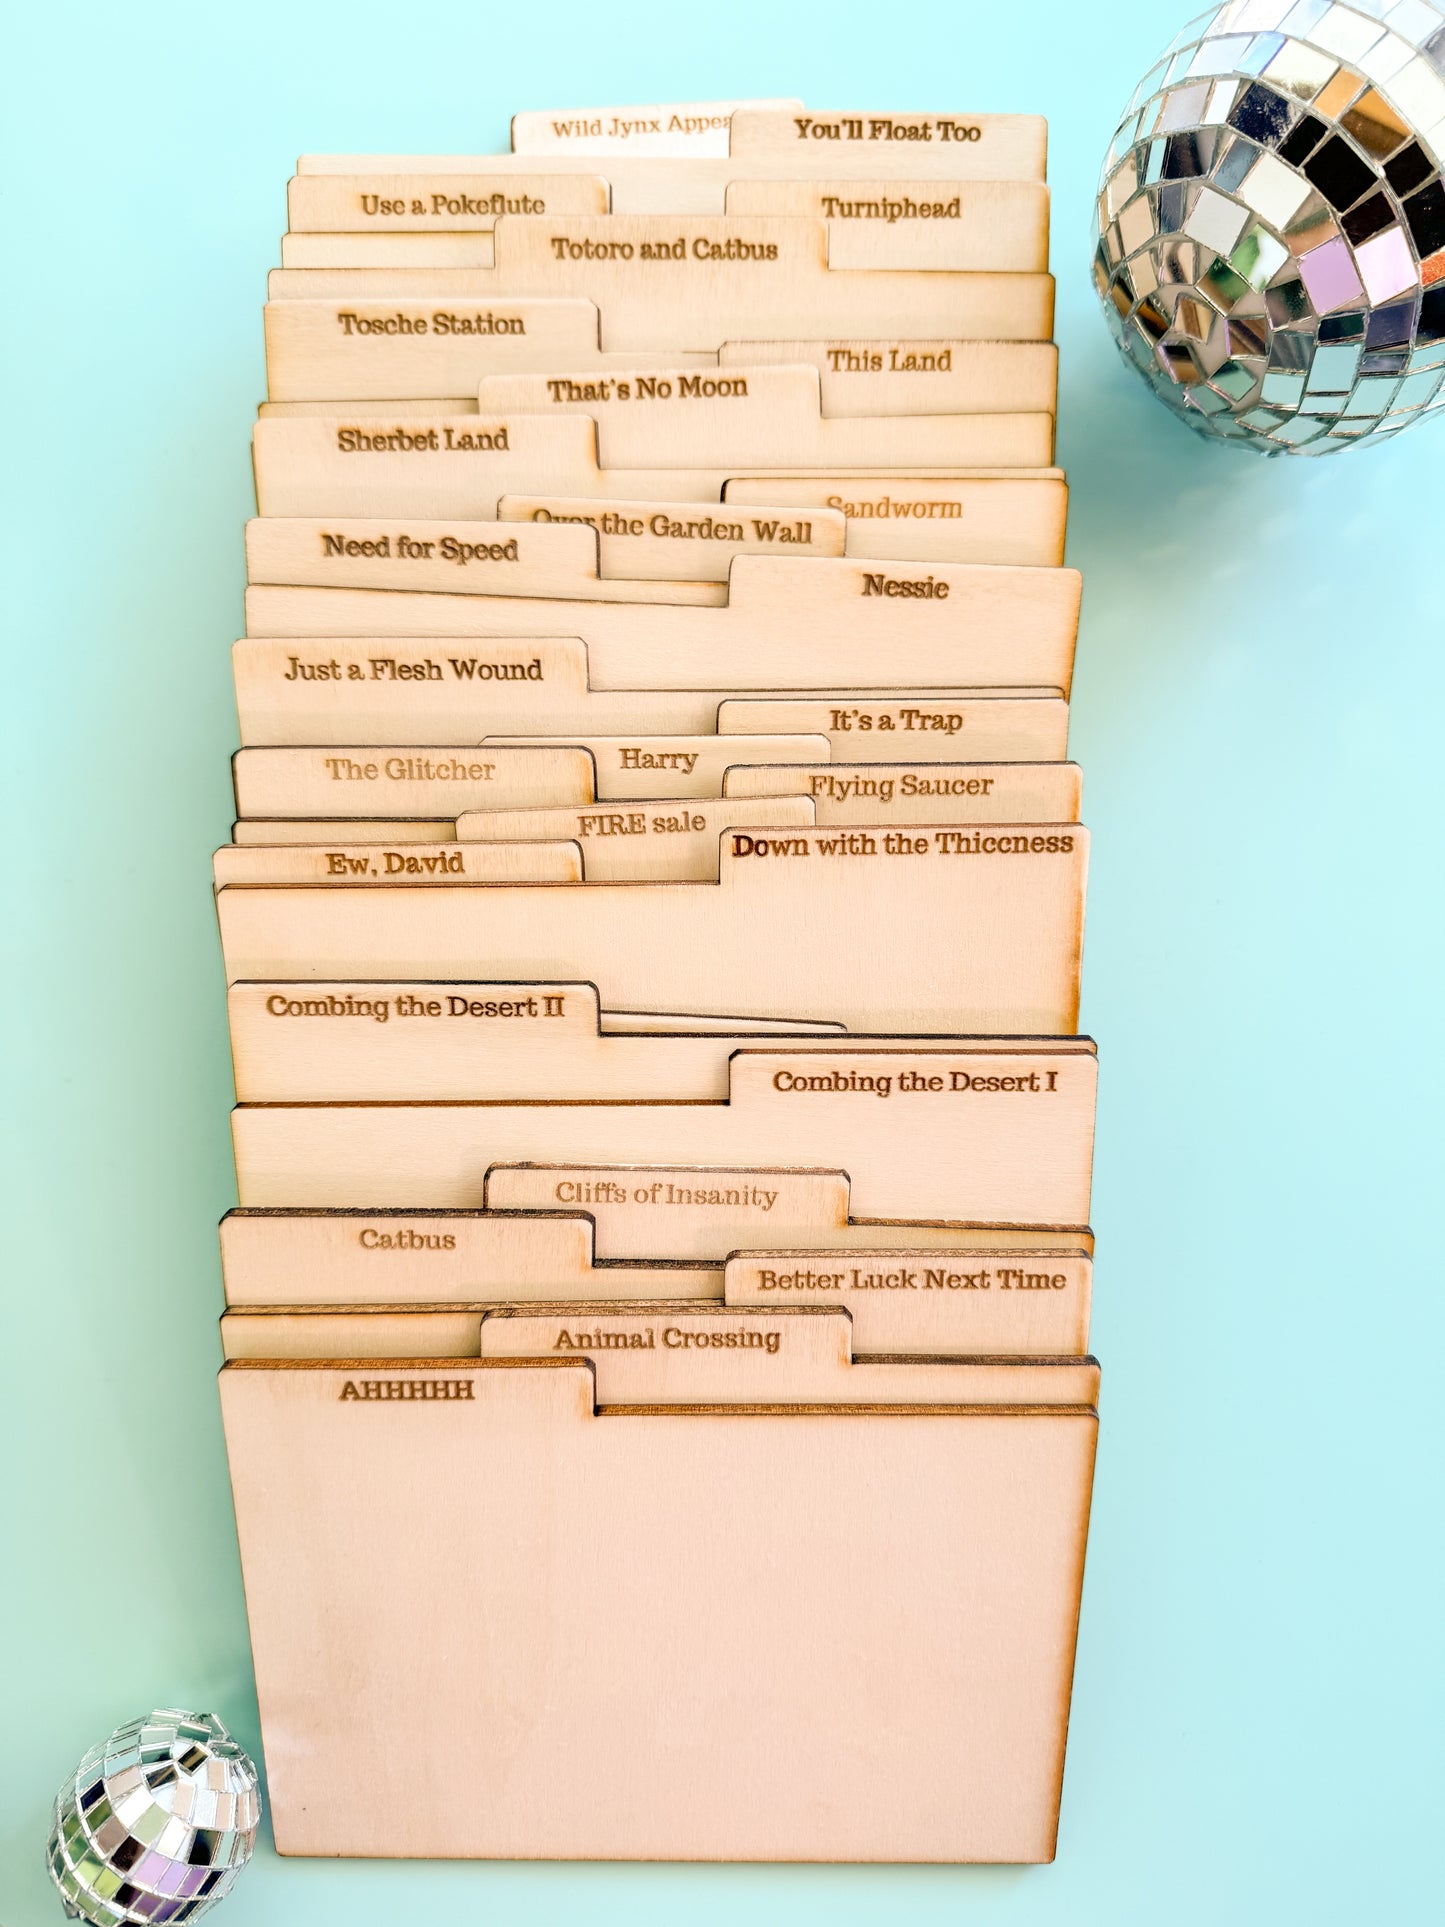 Wild Jynx
You'll Float Too
Use a Pokeflute
Turniphead
Totoro and Catbus
Tosche Station
This Land
That's No Moon
Sherbet Land
Sandworm
Over the Garden Wall
Need for Speed
Nessie
Just a Flesh Wound
It's a Trap
Harry
The Glitcher
Flying Saucer
FIRE sale
Down with the Thiccness
Ew, David
Combing the Desert II
Combing the Desert I
Cliffs of Insanity
Catbus
Better Luck Next Time
Animal Crossing
AHHHHH